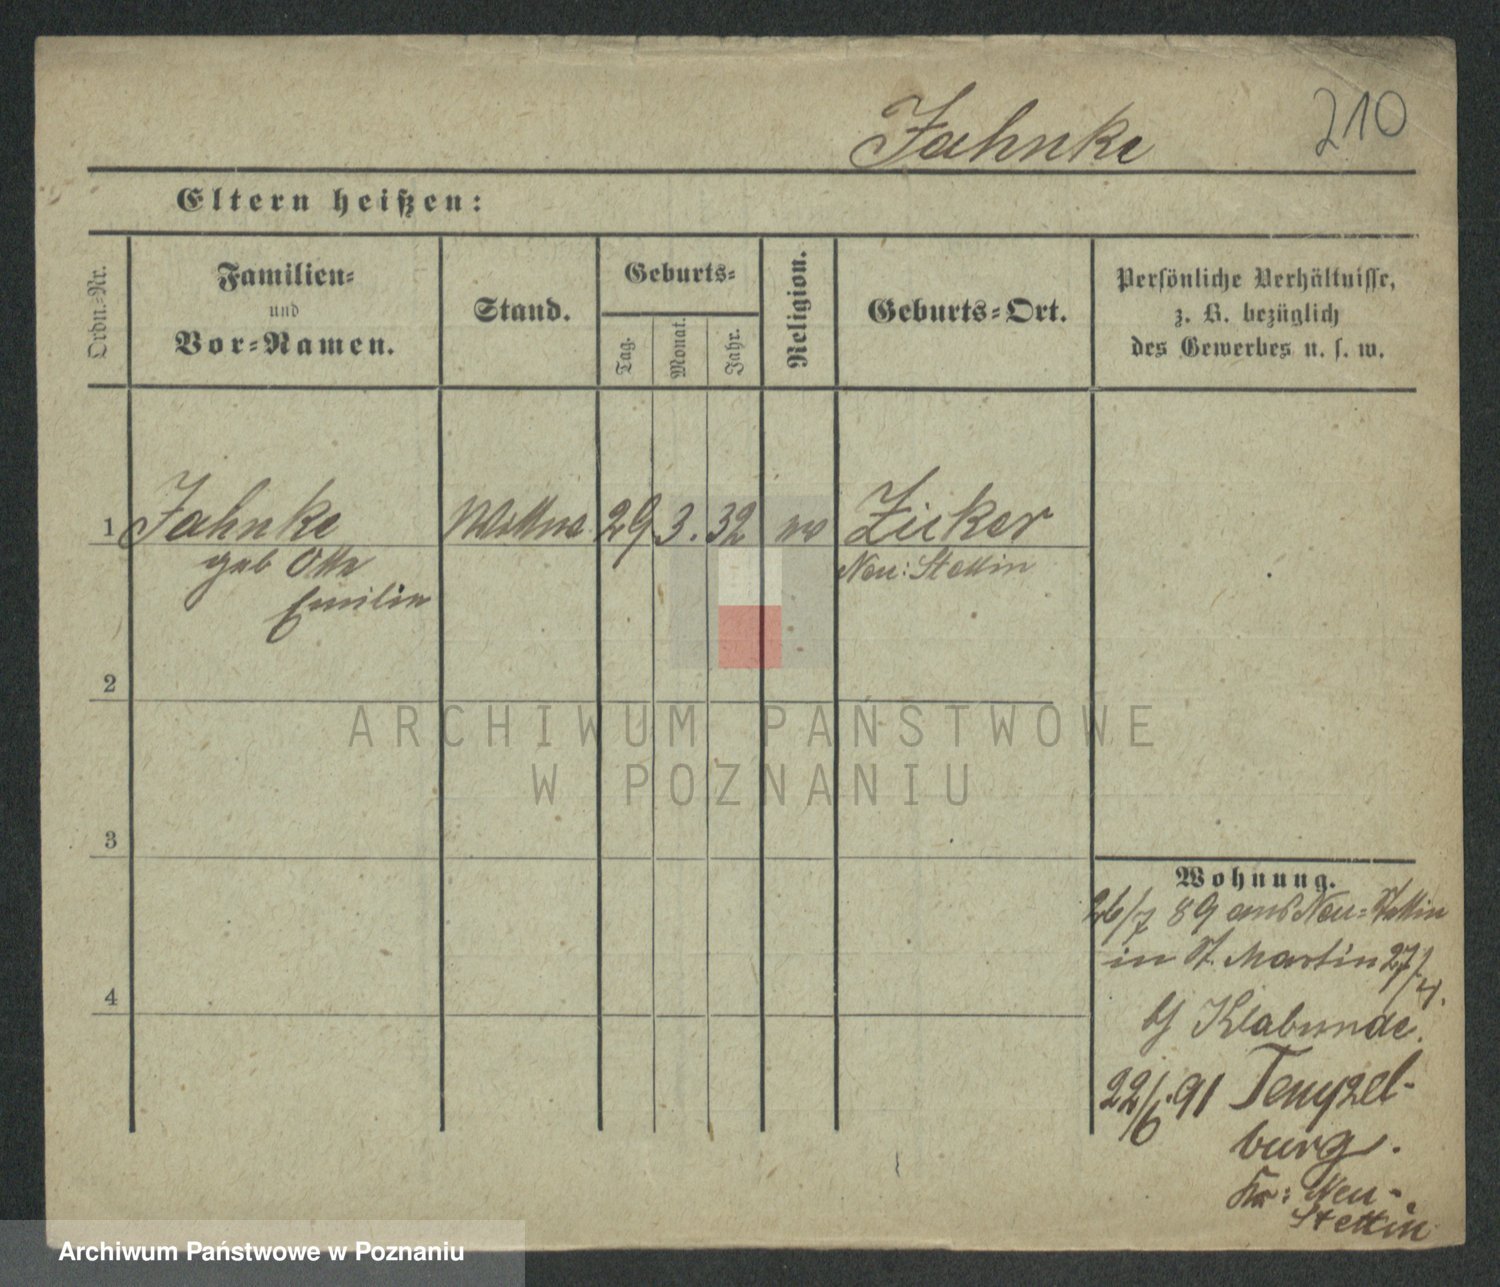 Jahnke
210
Eltern heißen:
Ordn.-Nr.
Familien-
und
Vor-Namen.
Stand.
Geburts-
Tag.
Monat.
Jahr.
Religion.
Geburts-Ort.
Persönliche Verhältnisse,
z. B. bezüglich
des Gewerbes u. s. w.
1 Jahnke Wittwe 29 3. 32 ev Zicker
geb Otto Neu: Stettin
Emilie
2
3
4
Wohnung.
26/7 89 aus Neu-Stettin
in St. Martin 27/
b/ Klabunde.
22/6. 91
burg.
Kr: Neu-
Stettin
ARCHIWUM PAŃSTWOWE
W POZNANIU
Archiwum Państwowe w Poznaniu